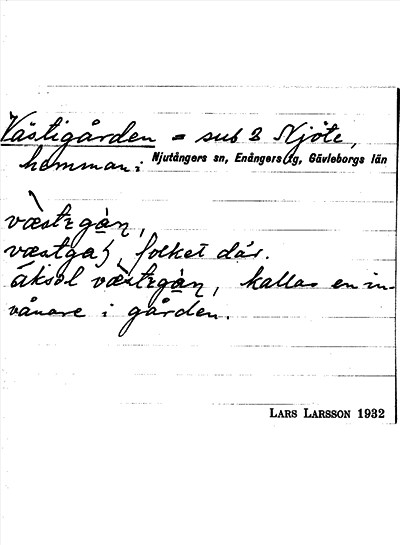 Västigården = sub 2 Njöte,
hemman i Njutångers sn, Enångers tg, Gävleborgs län
væstɪgàṇ,
væstga), folket där.
áksəl væ̀stɪgàṇ, kallas en in-
vånare i gården.
LARS LARSSON 1932